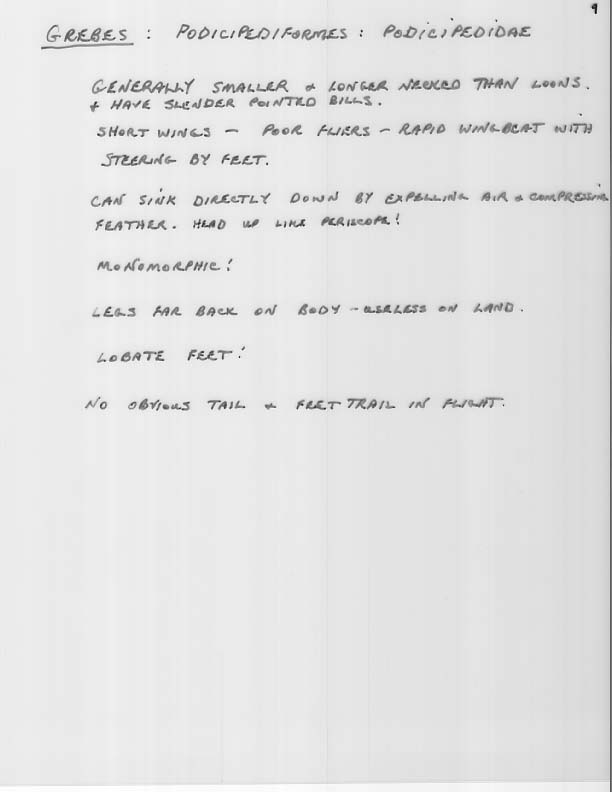 9
GREBES : PODICIPEDIFORMES : PODICIPEDIDAE
GENERALLY SMALLER & LONGER NECKED THAN LOONS.
& HAVE SLENDER POINTED BILLS.
SHORT WINGS - POOR FLIERS - RAPID WINGBEAT WITH
STEERING BY FEET.
CAN SINK DIRECTLY DOWN BY EXPELLING AIR & COMPRESSING
FEATHER. HEAD UP LIKE PERISCOPE!
MONOMORPHIC!
LEGS FAR BACK ON BODY - USELESS ON LAND.
LOBATE FEET!
NO OBVIOUS TAIL & FEET TRAIL IN FLIGHT.